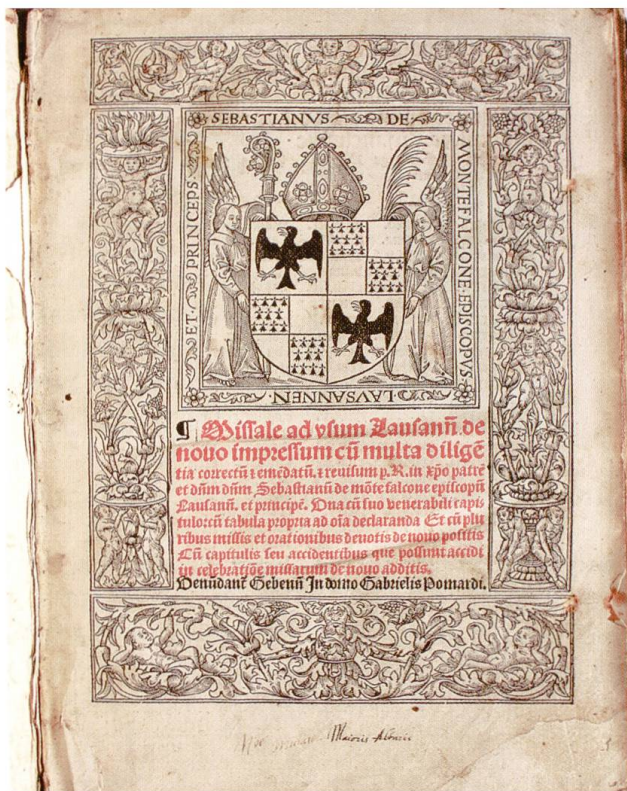 SEBASTIANVS DE
MONTEFALCONE·EPISCOPVS
LAVSANNEN
ET PRINCEPS
¶ Missale ad vsum Lausann̄. de
nouo impressum cū multa diligē
tia correctū ⁊ emēdatū. ⁊ reuisum p. R. in xp̄o patrē
et dn̄m dn̄m Sebastianū de mōte falcone episcopū
Lausann̄. et principē. Una cū suo venerabili capi
tulo: cū tabula propria ad oīa declaranda Et cū plu
ribus missis et orationibus deuotis de nouo positis
Cū capitulis seu accidentibus que possunt accidi
in celebratiōe missarum de nouo additis.
Venūdant̄ Gebenn̄ In domo Gabrielis Pomardi.
Maioris